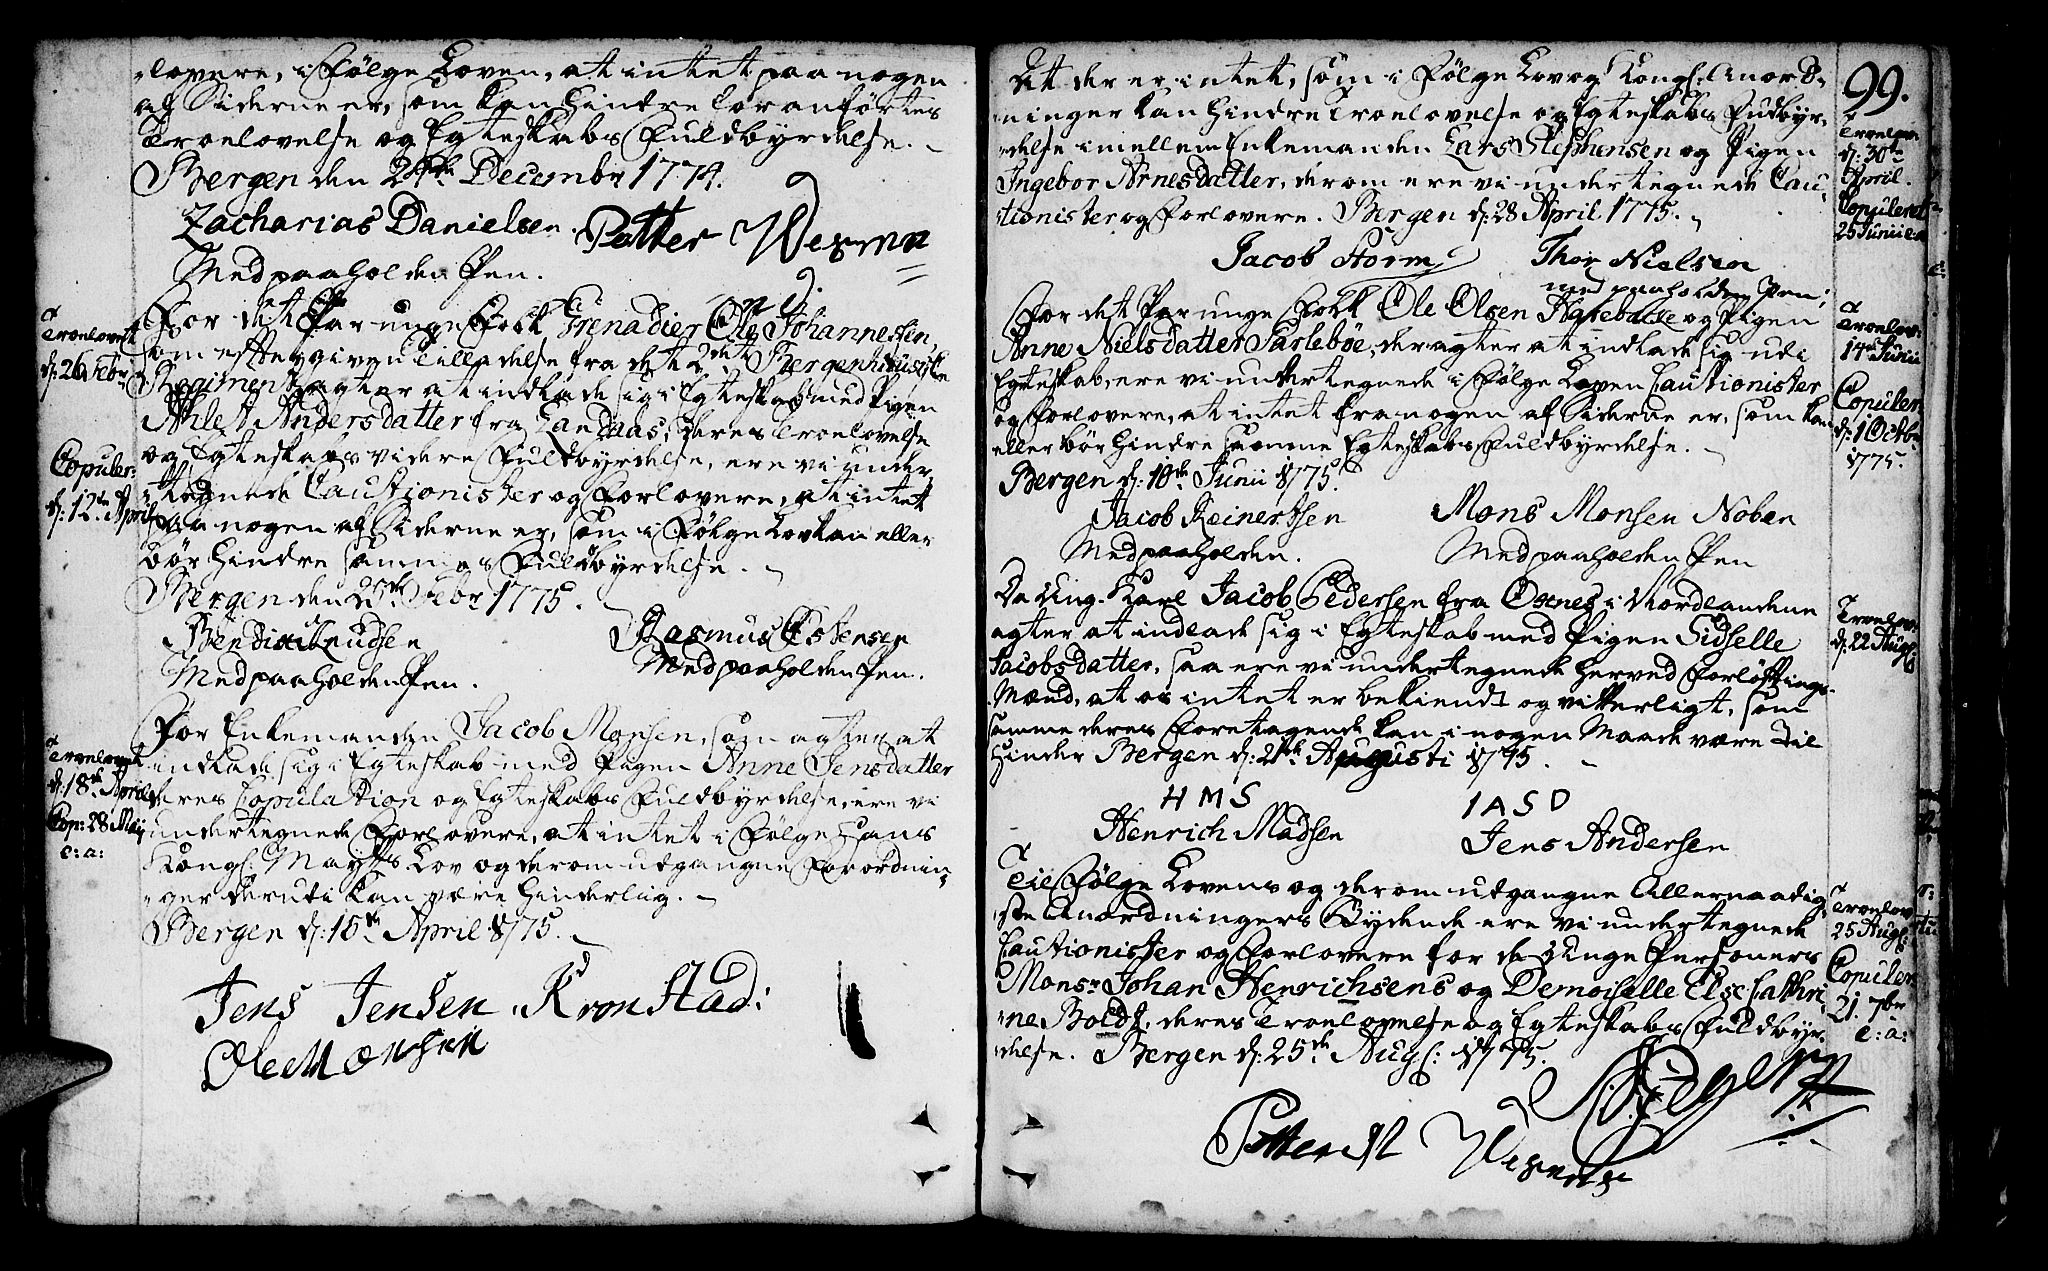 lovere, i Følge Loven, at intet paa nogen
af Siderne er, som kan hindre foranførtes
Troelovelse og Egteskabs Fuldbyrdelse.
Bergen den 29de Decembr 1774.
Zacharias Danielsen. Petter
Med paaholden Pen.
For det Par unge Folk Grenadier Ole Johannessen,
som efter given Tilladelse fra det 2det Bergenhuusiske
Regiment agter at indlade sig i Egteskab med Pigen
Ahlet Andersdatter fra Landaas; deres Troelovelse
og Egteskabs videre Fuldbyrdelse, ere vi under,
tegnede Cautionister og Forlovere, at intet
paa nogen af Siderne er, som i Følge Lov kan eller
bør hindre sammes Fuldbyrdelse.
Bergen den 25de Febr 1775.
Bendix Knudsen Rasmus Estensen
Med paaholden Pen. Med paaholden Pen.
Troelovet
d: 26 Febr
Copuler:
d: 12te April
For Enkemanden Jacob Monsen, som agter at
indlade sig i Egteskab med Pigen Anne Jensdatter
deres Copulation og Egteskabs Fuldbyrdelse, ere vi
undertegnede Forlovere, at intet i Følge Hans
Kongl: Mayts Lov og derom udgangne Forordnin-
ger deruti kan være hinderlig.
Bergen d: 15de April 1775.
Jens Jensen Kronstad:
Ole Monsen
Troelovet
d: 18de April
Cop: 28 Maij
e: a:
99.
At der er intet, som i Følge Lov og Kongl: Anord-
ninger kan hindre Troelovelse og Egteskabs Fudbyr-
delse imellem Enkemanden Lars Stephensen og Pigen
Ingebor Arnesdatter, derom ere vi undertegnede Cau-
tionister og Forlovere. Bergen d: 28 April 1775.
Jacob Storm Thor Nielsen
med paaholden Pen;
Troelov:
d: 30te
April.
Copuleret
25 Junii
For det Par unge Folk Ole Olsen og Pigen
Anne Nielsdatter Sarlebøe, der agter at indlade sig udi
Egteskab, ere vi undertegnede i Følge Loven Cautionister
og Forlovere, at intet fra nogen af Siderne er, som kan
eller bør hindre samme Egteskabs Fuldbyrdelse.
Bergen d: 10de Junii 1775.
Jacob Reinertsen Mons Monsen Noben
Med paaholden. Med paaholden Pen
Troelov:
14de Junii
Copuler:
d: 1 Octbr
1775.
Da Ung-Karl Jacob Pedersen fra Osnes i Nordlandene
agter at indlade sig i Egteskab med Pigen Sidselle
Jacobsdatter, saa ere vi undertegnede herved Forløftnings-
Mænd, at os intet er bekiendt og vitterligt, som
samme deres Foretagende kan i nogen Maade være til
Hinder Bergen d: 21de Augusti 1775.
H M S I A S D
Henrich Madsen Jens Andersen
Troelov:
d: 22 Augl:
Til Følge Lovens og derom udgangne Allernaadig-
ste Anordningers Bydende ere vi undertegnede
Cautionister og Forlovere for de 2 unge Personers
Monsr Johan Henrichsens og Demoiselle Else Cathri-
ne Boldt, deres Troelovelse og Egteskabs Fuldbyr-
delse. Bergen d: 25de Augl: 1775.
Troelov:
25 Augl:
Copuler
21. 7br
e: a: